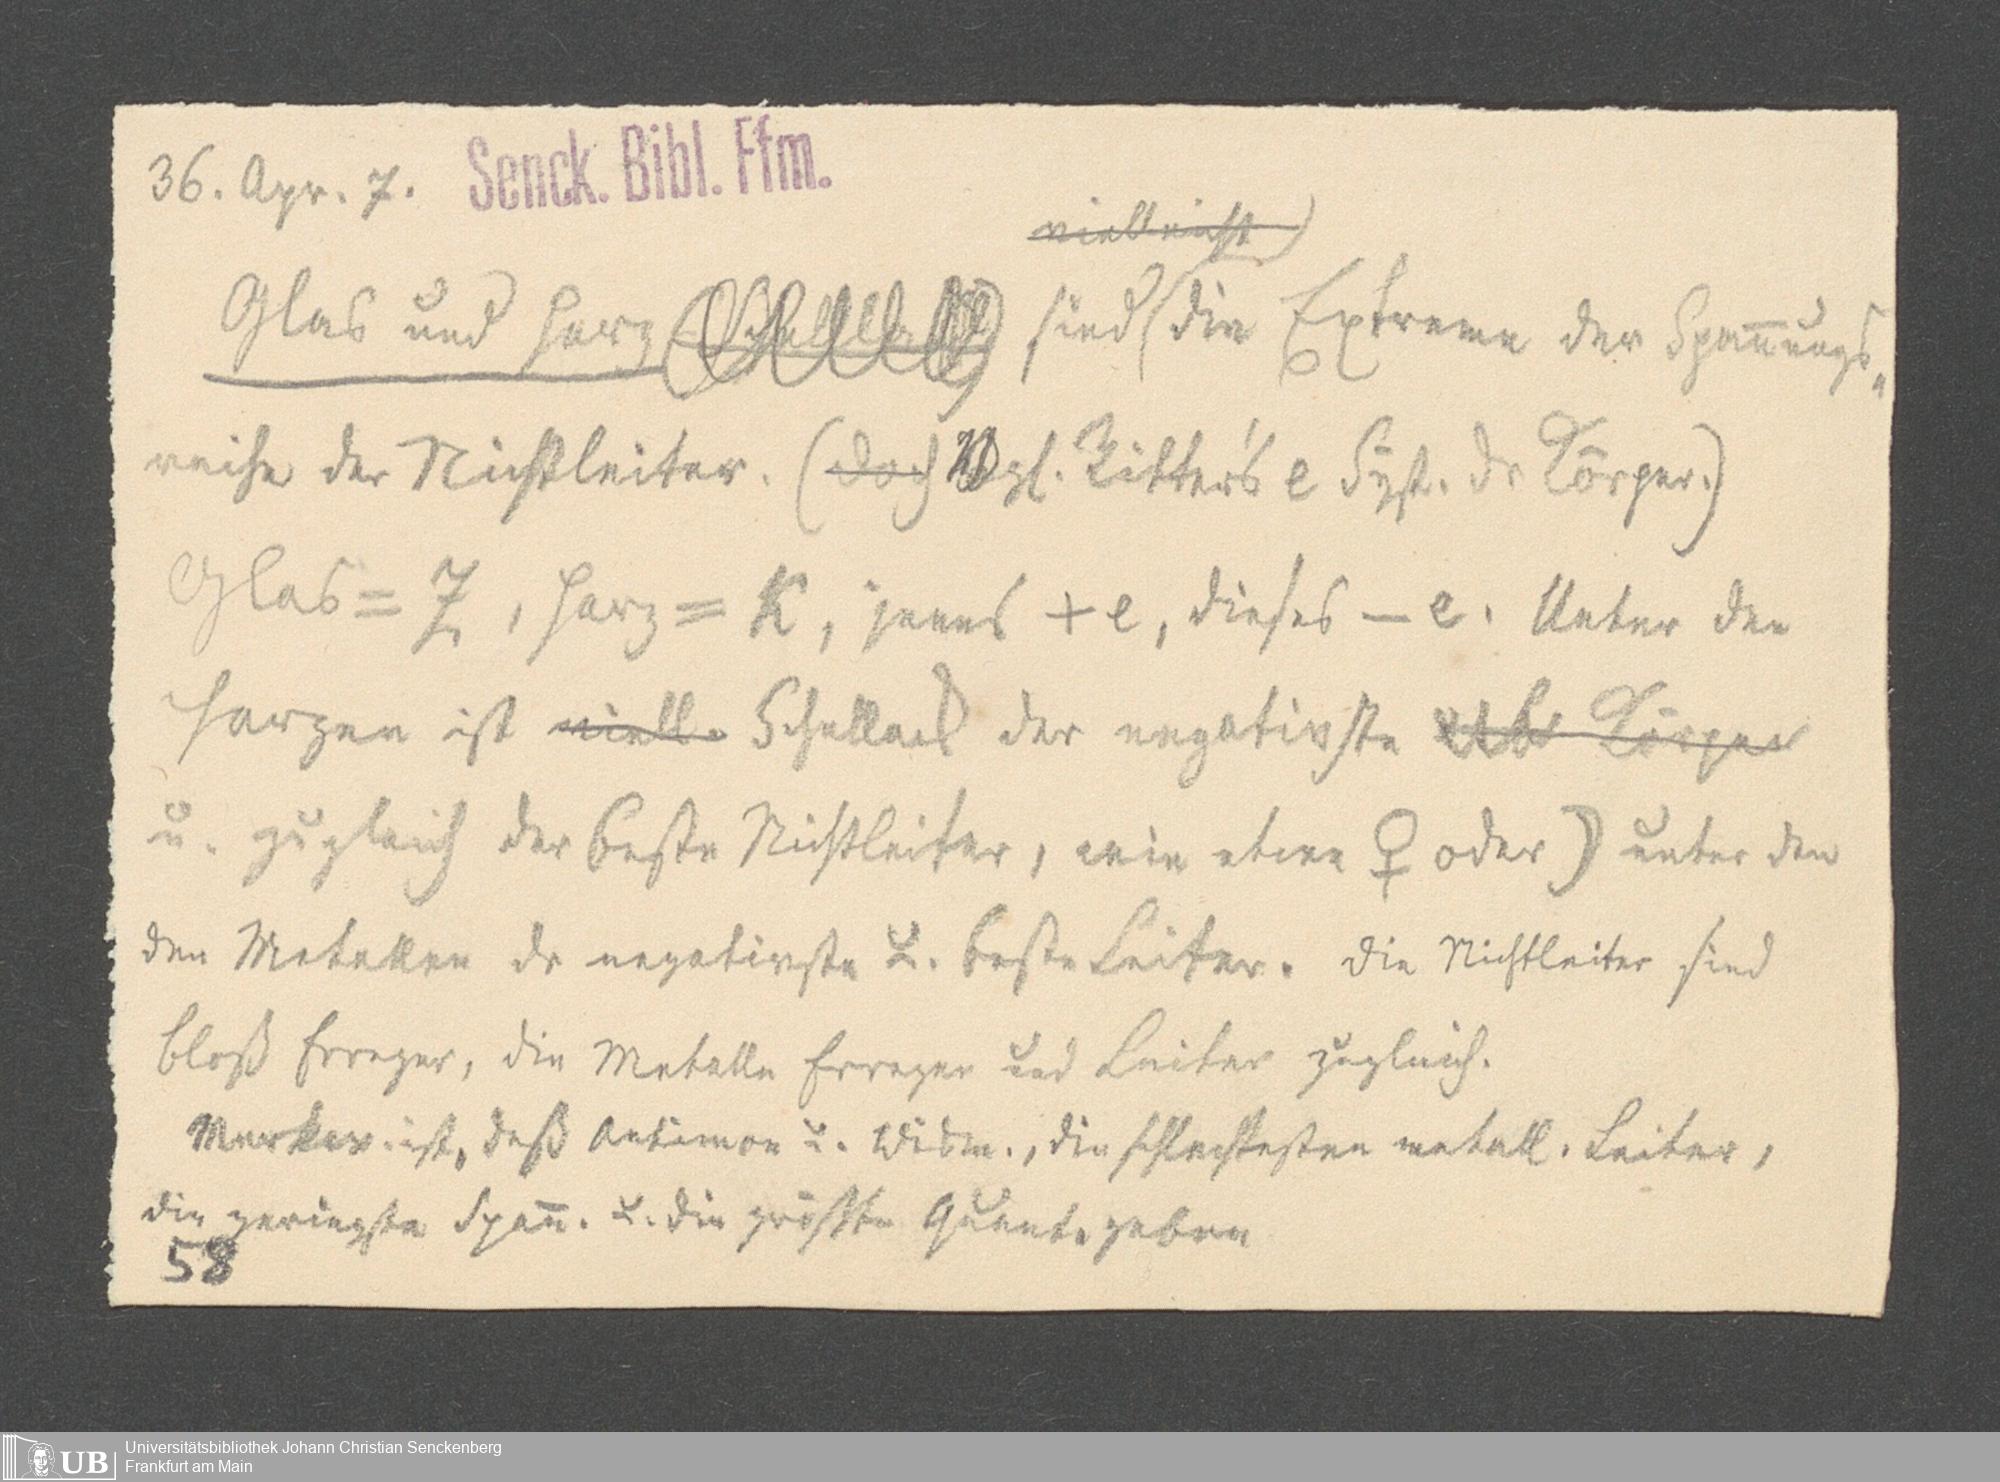 36. Apr. 7.
Senck. Bibl. Ffm.
vielleicht
Glas und Harz sind die Extreme der Span̄ungs„
reihe der Nichtleiter. (doch Vgl. Ritter's e Syst. dr Körper.)
Glas = Z, Harz = K, jenes + e, dieses − e. Unter den
Harzen ist viell. Schellack der negativste Körper
u. zugleich der beste Nichtleiter, wie etwa ♀ oder ☽ unter den
den Metallen dr negativste u. beste Leiter. Die Nichtleiter sind
bloß Erreger, die Metalle Erreger und Leiter zugleich.
Merkw. ist, daß Antimon u. Wism., die schlechtesten metall. Leiter,
die geringste Span̄. u. die größte Quant. geben
58
UB
Universitätsbibliothek Johann Christian Senckenberg
Frankfurt am Main